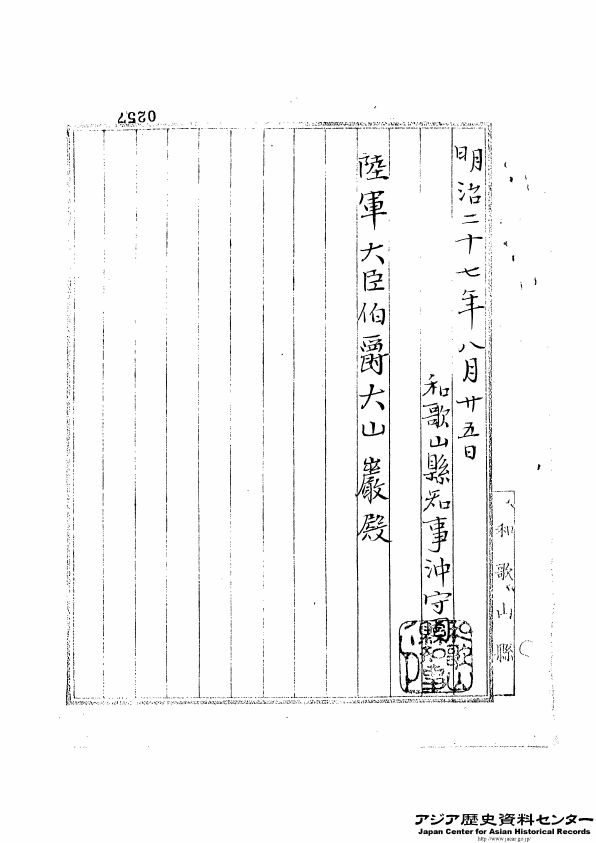 0257
明治二十七年八月廿五日
和歌山縣知事沖守固
陸軍大臣伯爵大山巖殿
和歌山縣
和歌山縣知事之印
アジア歴史資料センター
Japan Center for Asian Historical Records
http://www.jacar.go.jp/